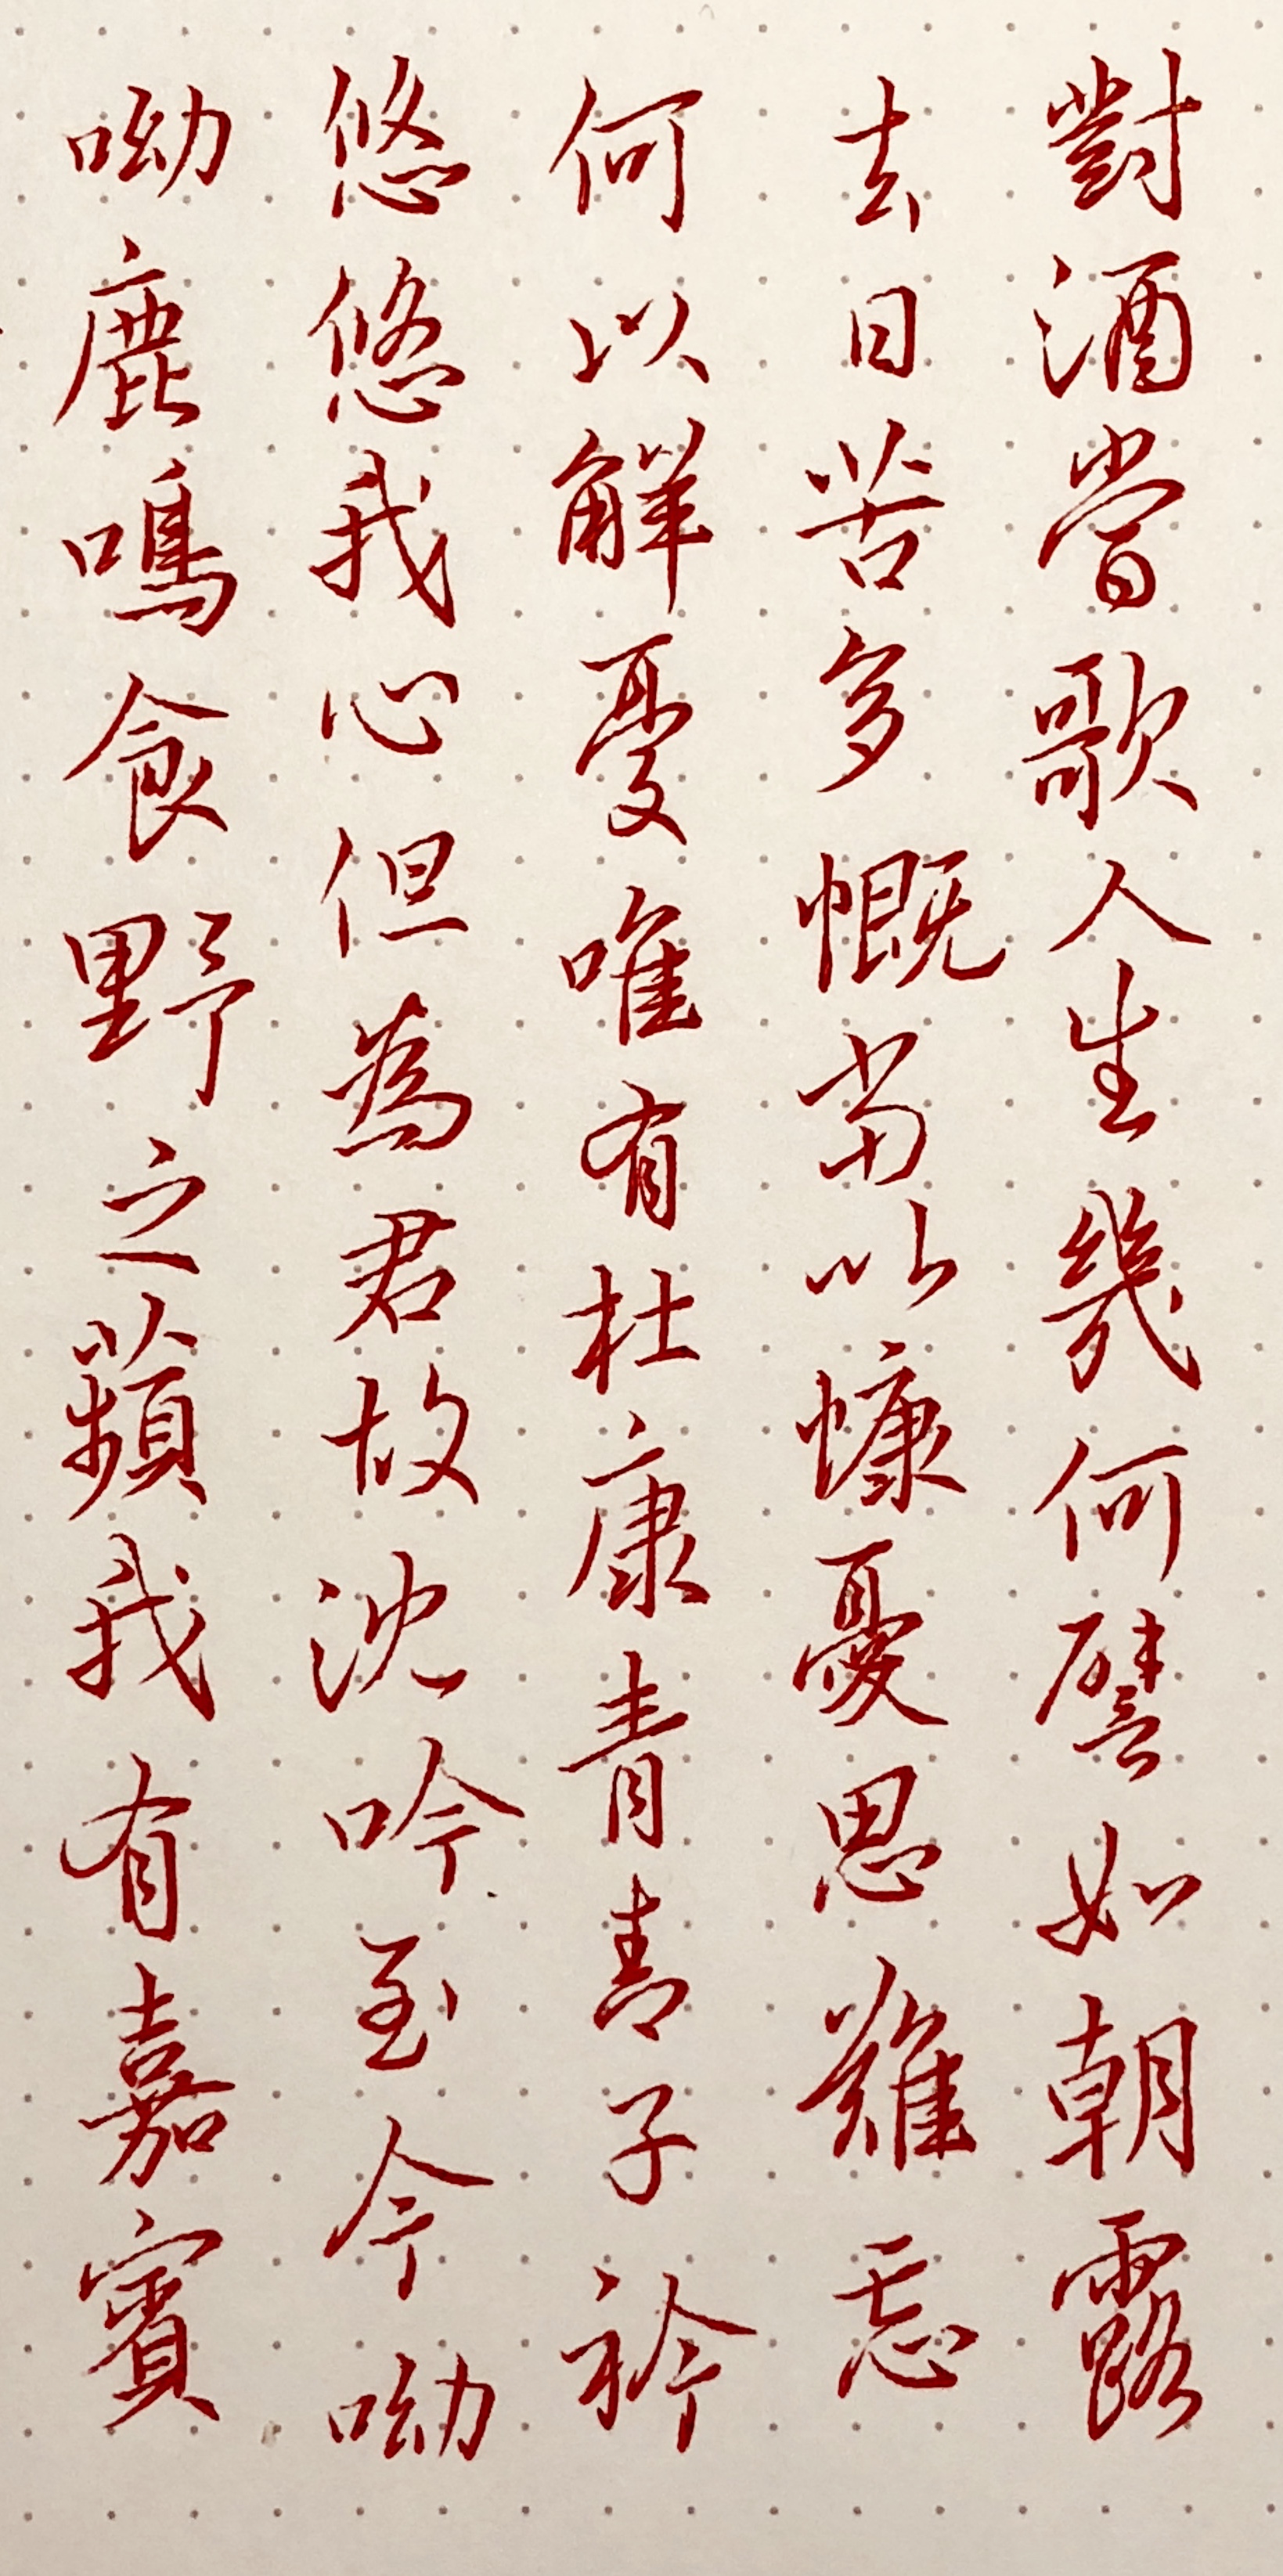 對酒當歌人生幾何譬如朝露
去日苦多慨當以慷憂思難忘
何以解憂唯有杜康青青子衿
悠悠我心但為君故沈吟至今呦
呦鹿鳴食野之蘋我有嘉賓